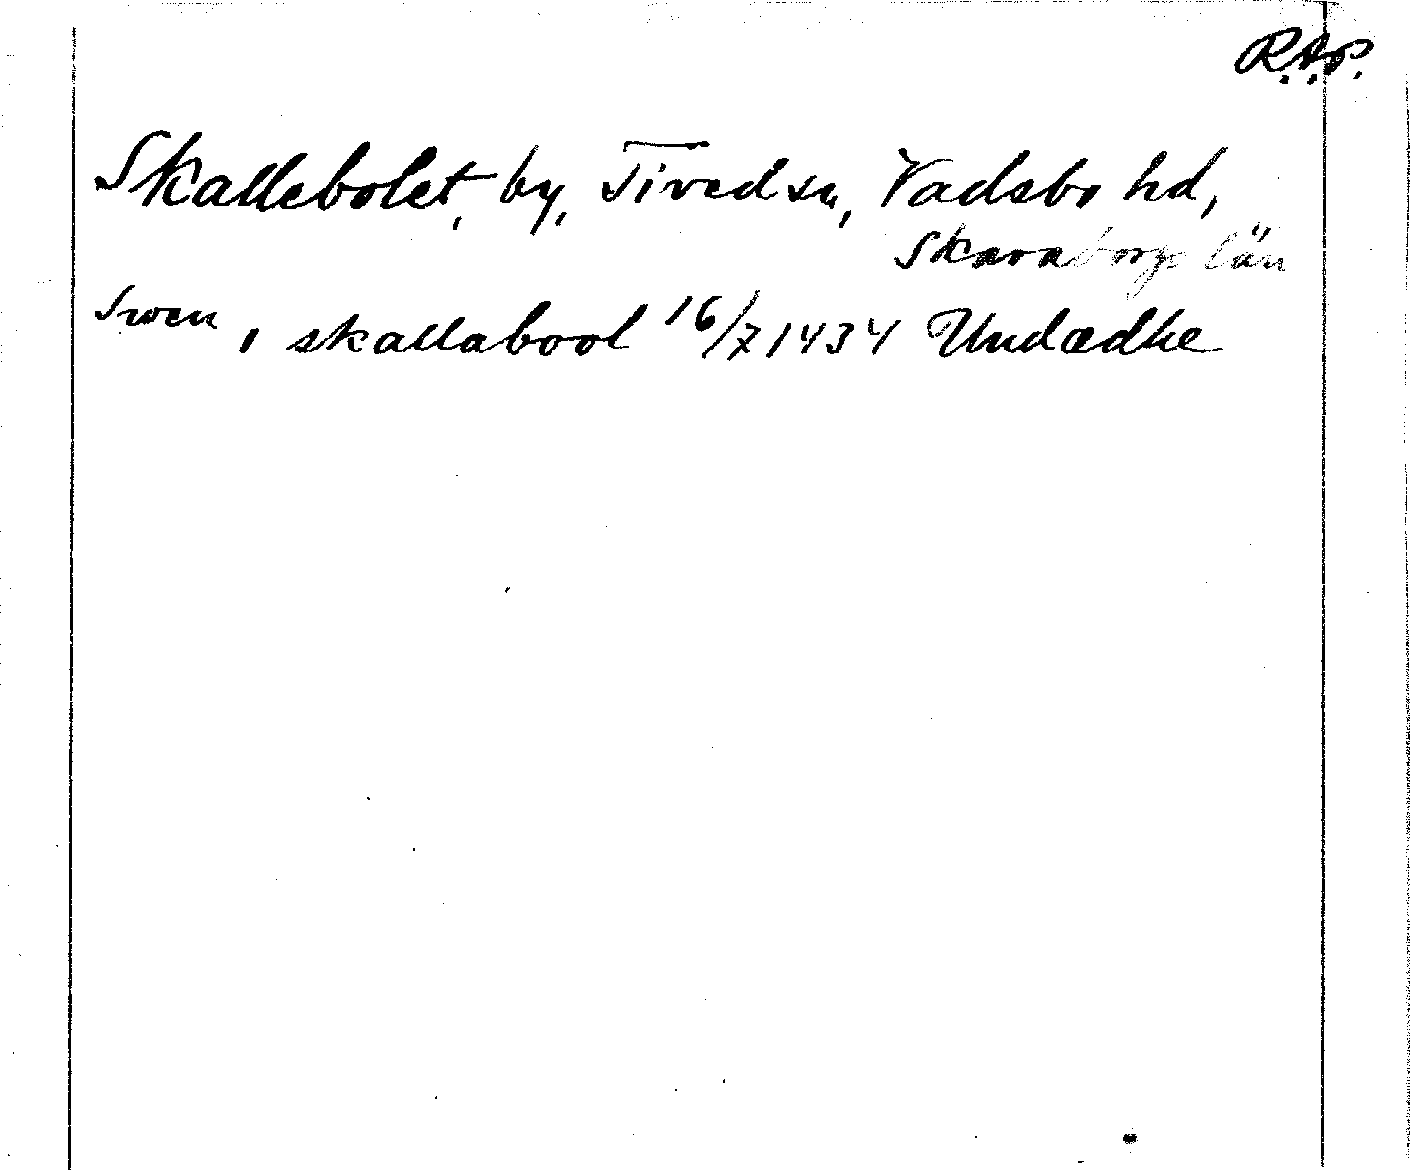 R.A.P.
Skallebolet, by, Tived sn, Vadsbo hd,
Skaraborgs län
Swen i skallabool 16/7 1434 Undædhe